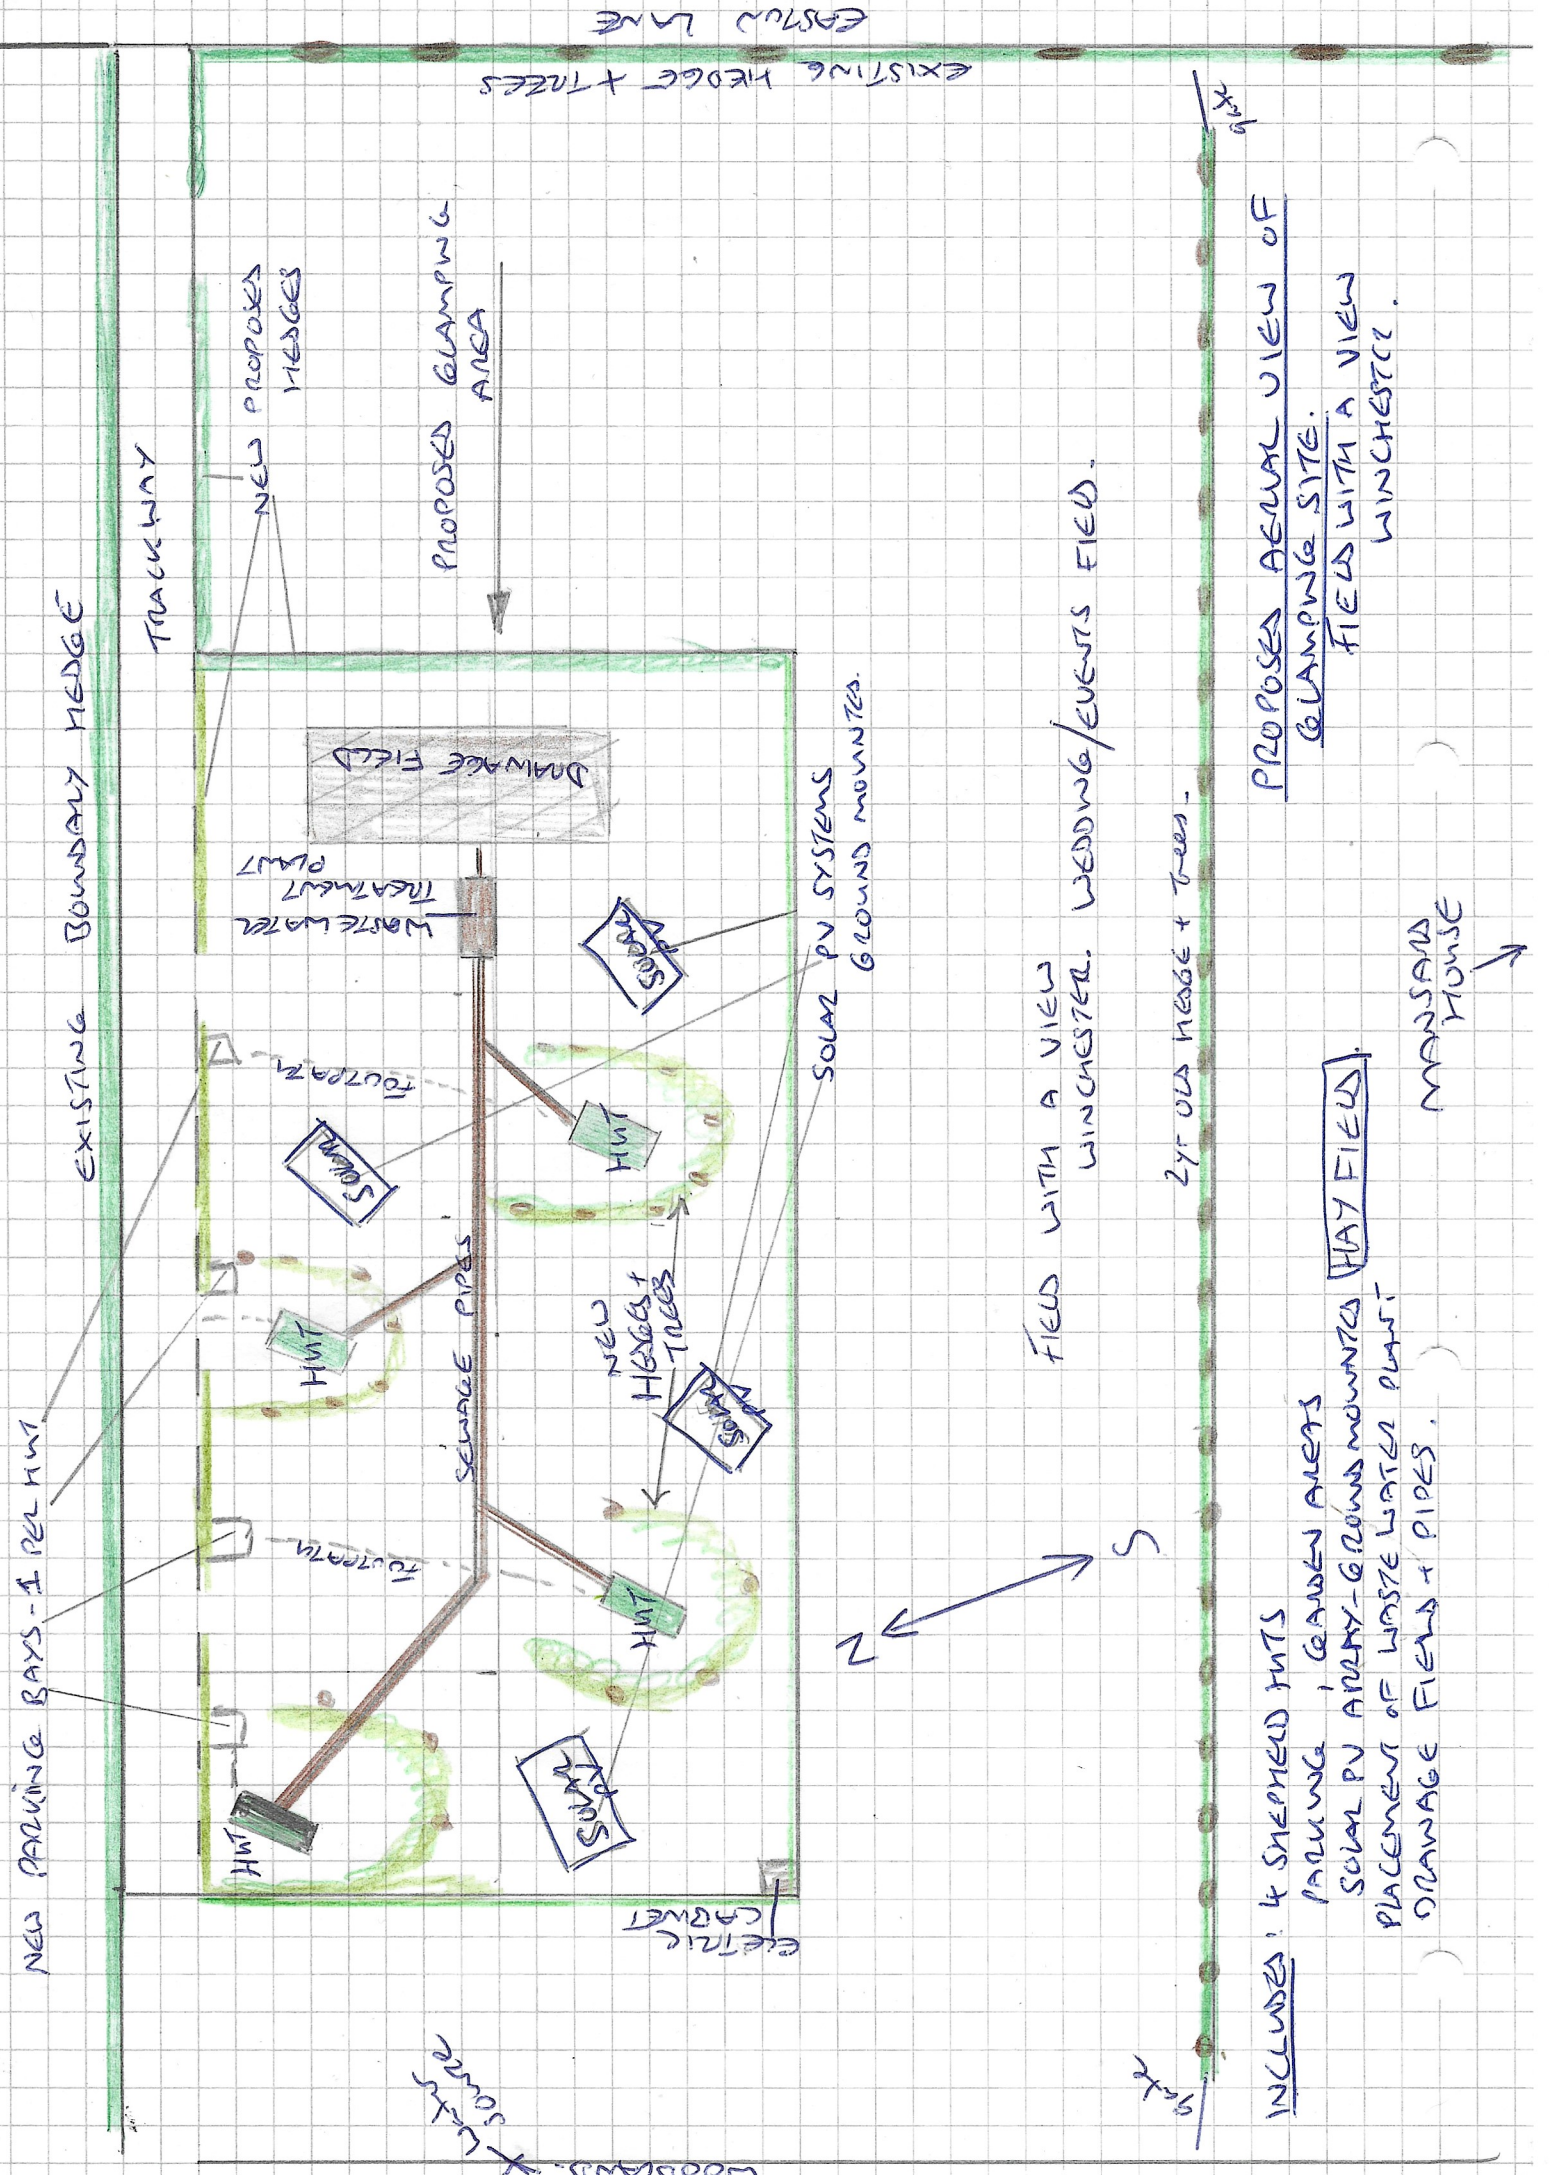 EASTON LANE
EXISTING HEDGE + TREES
EXISTING BOUNDARY HEDGE
TRACKWAY
NEW PROPOSED
HEDGES
PROPOSED GLAMPING
AREA
NEW PARKING BAYS - 1 PER HUT
DRAINAGE FIELD
WASTE WATER
TREATMENT
PLANT
FOOTPATH
FOOTPATH
SEWAGE PIPES
HUT
HUT
HUT
HUT
SOLAR
PV
SOLAR
SOLAR
PV
SOLAR
PV
NEW
HEDGES +
TREES
SOLAR PV SYSTEMS
GROUND MOUNTED.
ELETRIC
CABINET
FIELD WITH A VIEW
WINCHESTER. WEDDING/EVENTS FIELD.
N
S
2yr OLD HEDGE + Trees.
PROPOSED AERIAL VIEW OF
GLAMPING SITE.
FIELD WITH A VIEW
WINCHESTER.
INCLUDES: 4 SHEPHERD HUTS
PARKING, GARDEN AREAS
SOLAR PV ARRAY - GROUND MOUNTED
PLACEMENT OF WASTE WATER PLANT
DRAINAGE FIELD + PIPES.
HAY FIELD.
MANSARD
HOUSE
WOODLAND